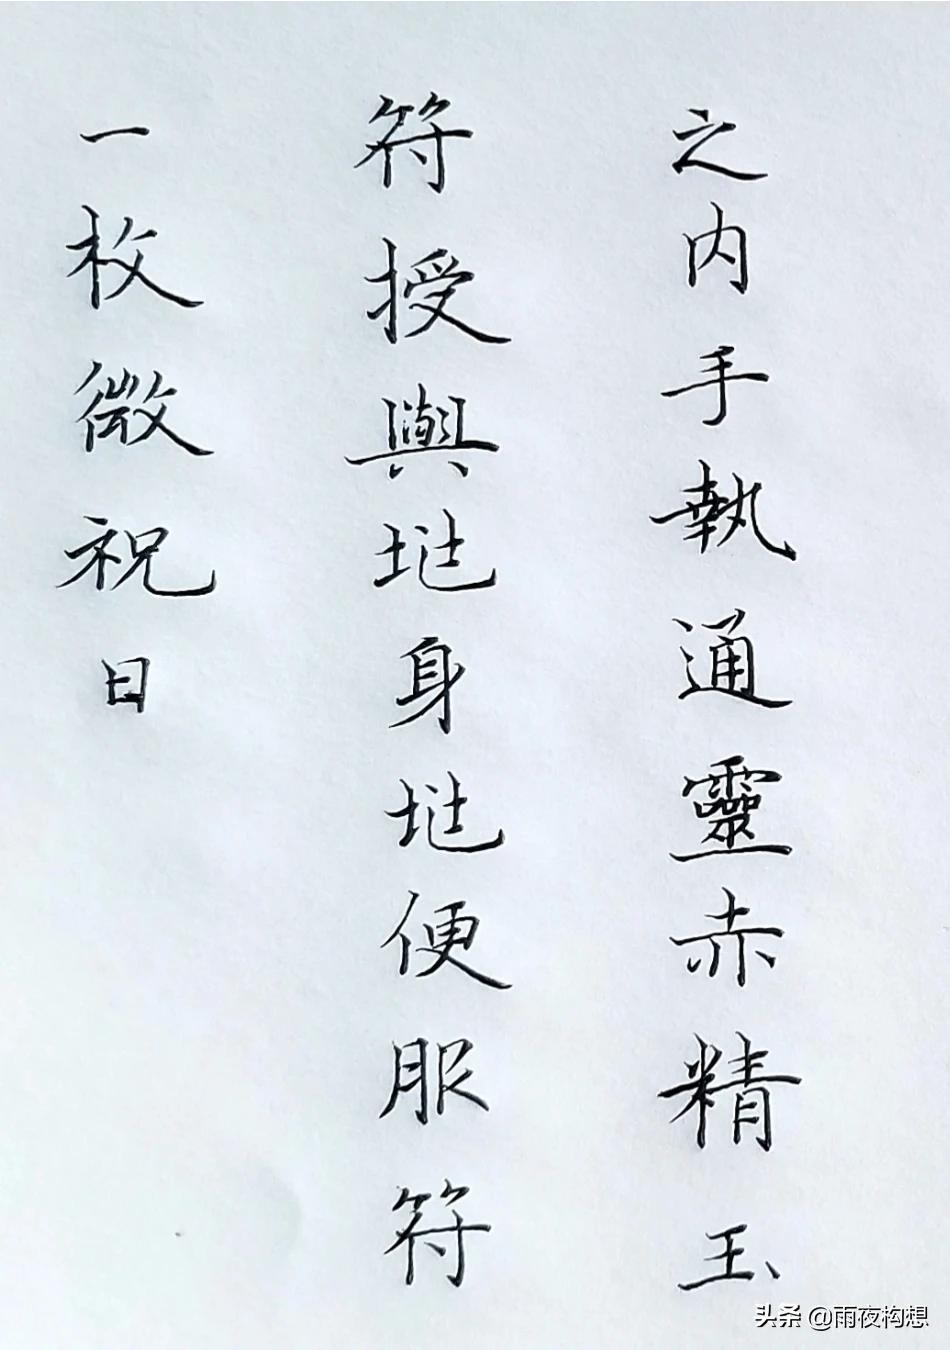 之内手執通靈赤精玉
符授與兆身兆便服符
一枚微祝曰
头条 @雨夜构想